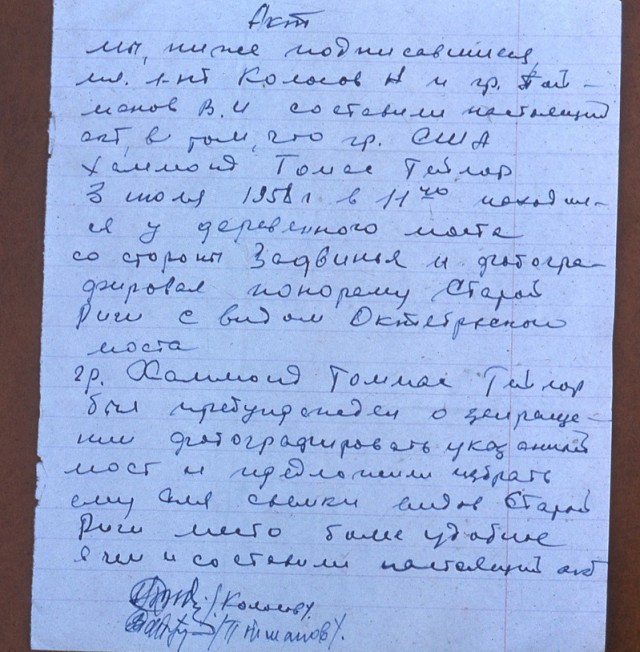 Акт
мы, ниже подписавшиеся
мл. л-нт Колосов Н и гр. Той-
манов В. И составили настоящий
акт, в том, что гр. США
Хаммонд Томас Тейлор
3 июля 1958 г в 11 40 находил-
ся у деревенного моста
со стороны Задвинья и фотогра-
фировал понораму Старой
Риги с видом Октябрьского
моста
гр. Хаммонд Томмас Тейлор
был предупрежден о запраще-
нии фотографировать указаний
мост и предложили избрать
ему для съемки видов Старой
Риги место более удобное
о чем и составили настоящий акт
/Колосов/.